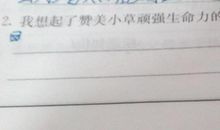 2. 我想起了赞美小草顽强生命力的